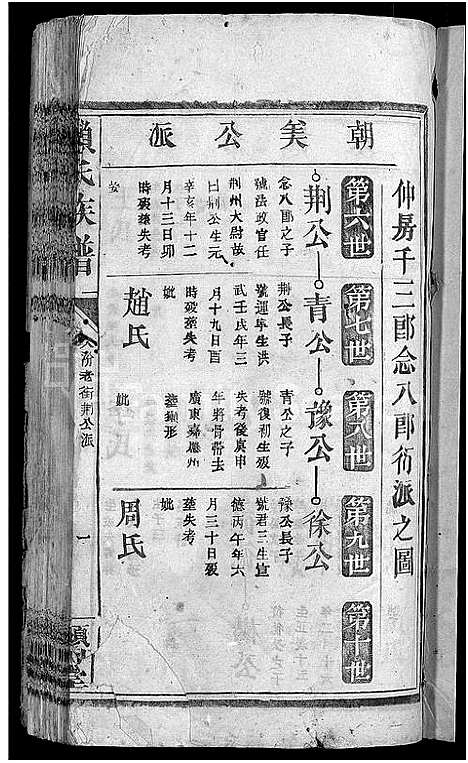 仲房千三郎念八郎衍派之圖
朝美公派
第六世
第七世
第八世
第九世
第十世
荆公
青公
豫公
徐公
念八郎之子
號法政官任
荆州大尉故
曰荆公生元
辛亥年十二
月十三日卯
時歿葬失考
妣
荆公長子
號運亨生洪
武壬戌年三
月十九日酉
時歿葬失考
妣
趙氏
青公之子
號復初生歿
失考後庚申
年將骨帶去
廣東嘉應州
葬獅形
妣
豫公長子
號君三生宣
德丙午年六
月三十日歿
葬失考
妣
周氏
賴氏族譜
老街荆公派
一